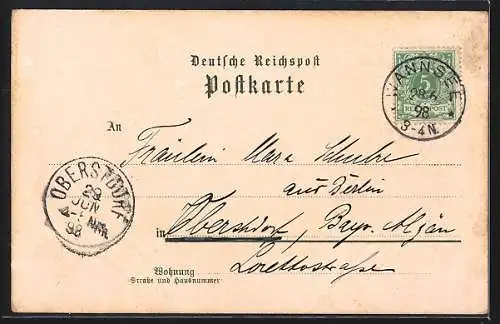 Deutsche Reichspost
Postkarte
WANNSEE
28.6.
98
3-4N.
5
REICHSPOST
An
Fräulein Mara Schultze
aus Berlin
in Oberstdorf, Bayr. Algäu
Lorettostraße
OBERSTDORF
29
JUN
NM
98
Wohnung
Straße und Hausnummer